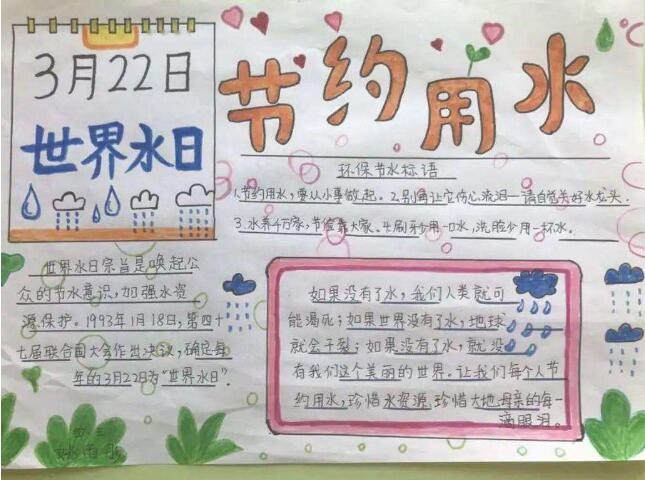 3月22日
世界水日
节约用水
环保节水标语
1.节约用水，要从小事做起。2.别再让它伤心流泪—请自觉关好水龙头.
3.水养千万家，节俭靠大家。4.刷牙少用一口水，洗脸少用一杯水。
世界水日宗旨是唤起公
众的节水意识，加强水资
源保护。1993年1月18日，第四十
七届联合国大会作出决议，确定每
年的3月22日为“世界水日”.
如果没有了水，我们人类就可
能渴死；如果世界没有了水，地球
就会干裂；如果没有了水，就没
有我们这个美丽的世界。让我们每个人节
约用水，珍惜水资源，珍惜大地母亲的每一
滴眼泪。